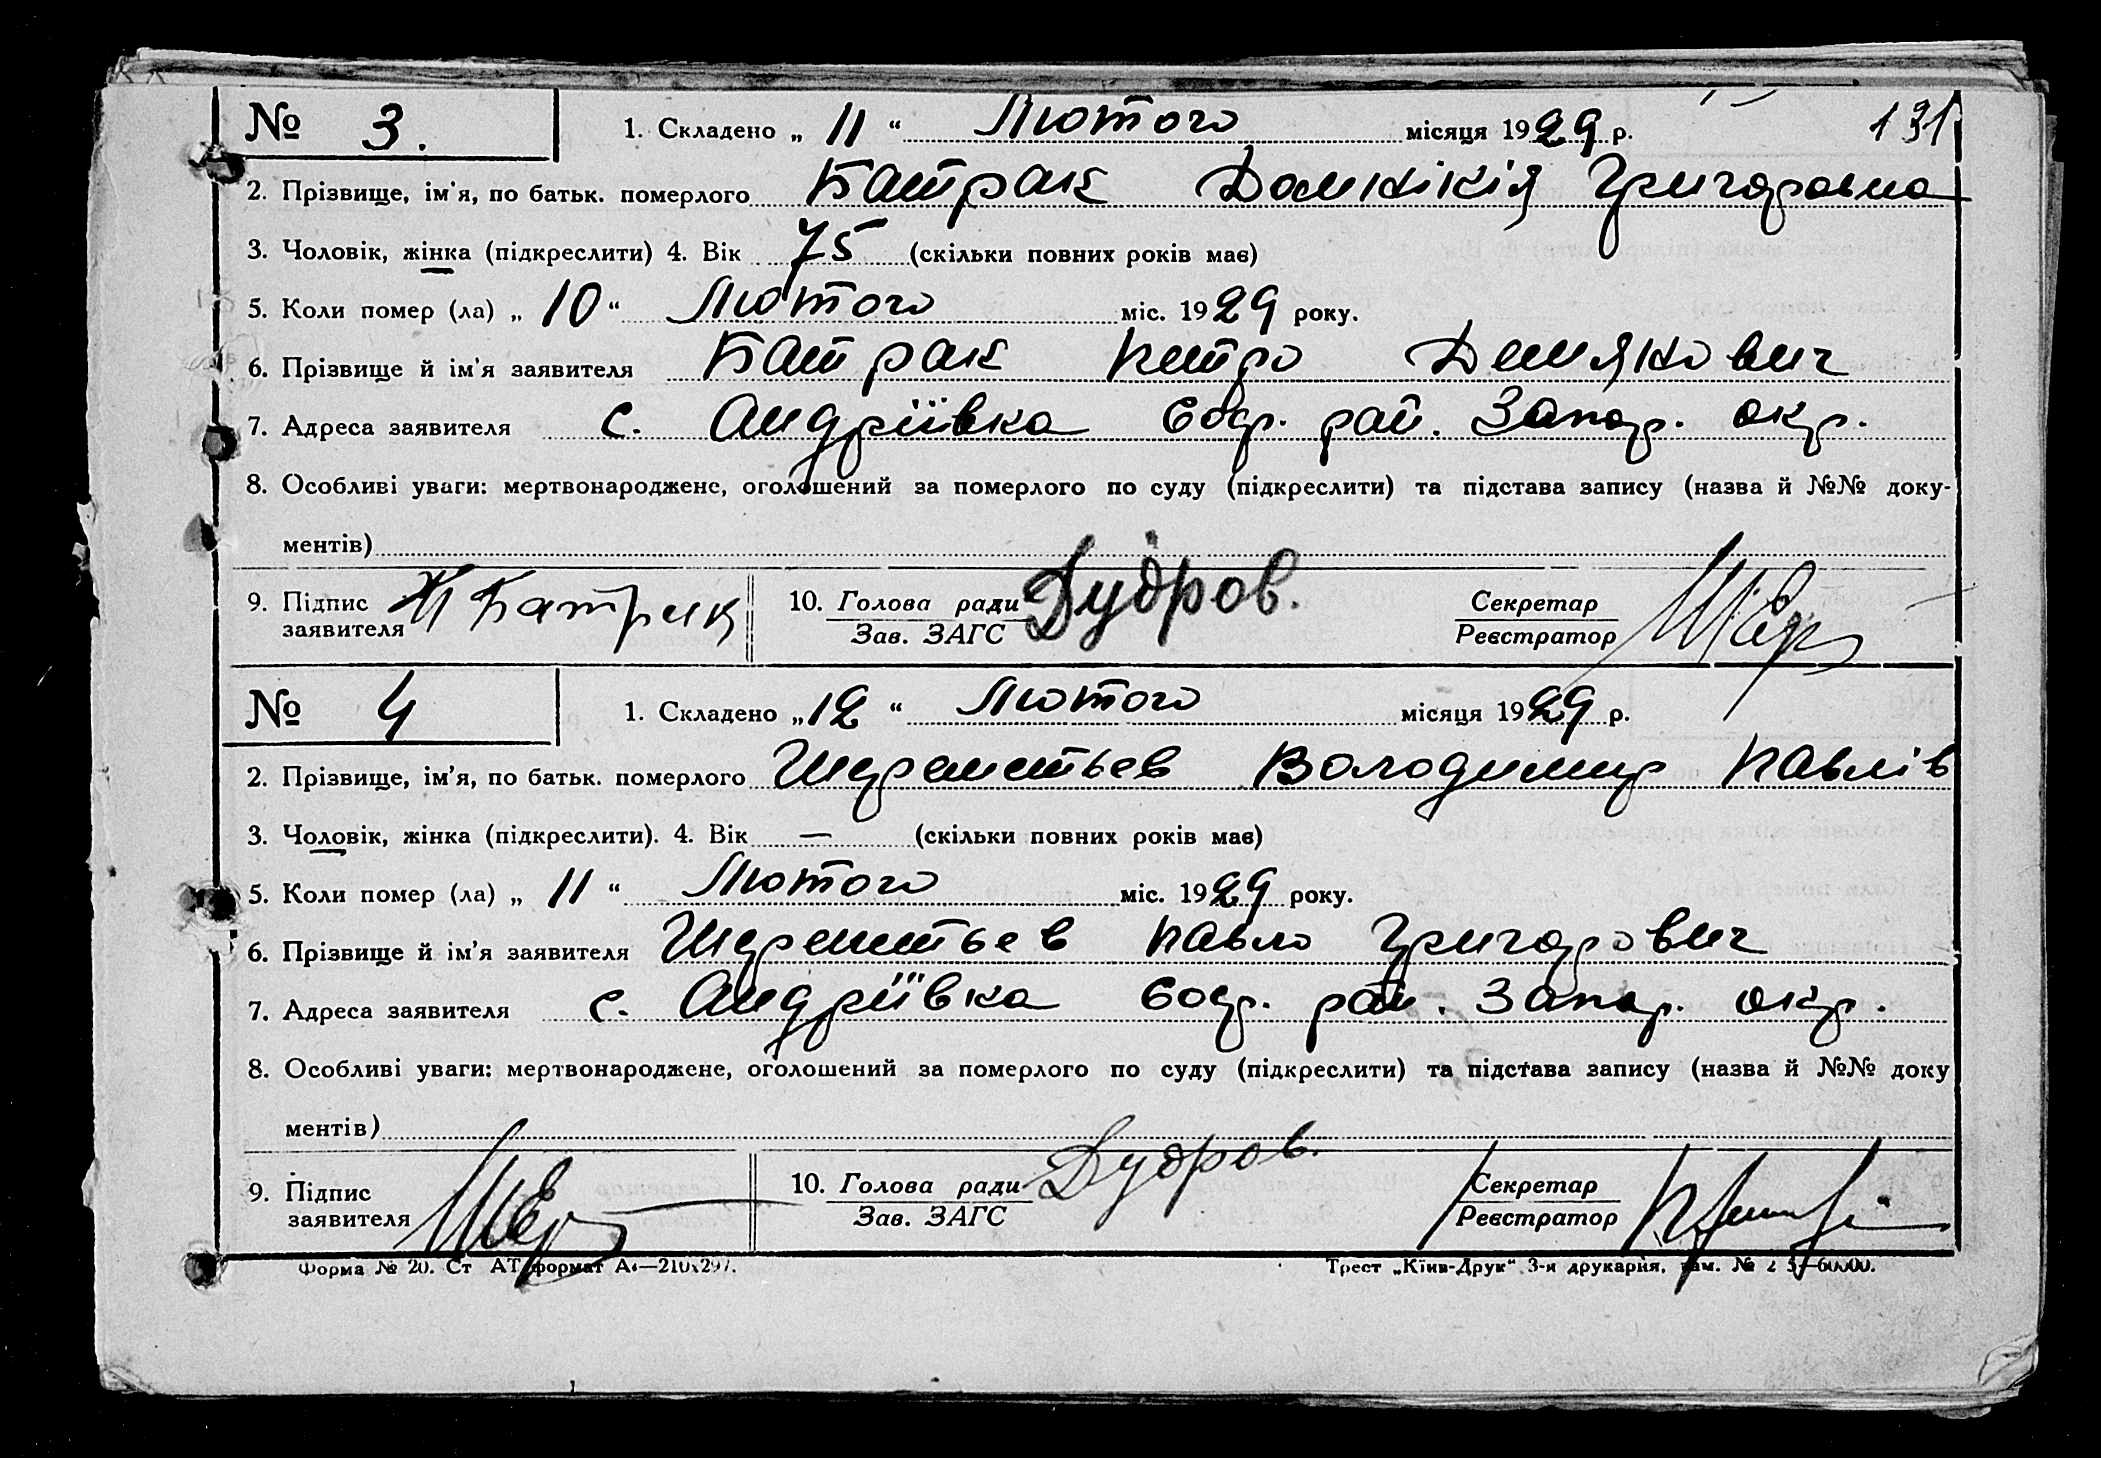 № 3. 1. Складено „ 11 “ Лютого місяця 1929 р. 131
2. Прізвище, ім'я, по батьк. померлого Батрак Домнікія Григоровна
3. Чоловік, жінка (підкреслити) 4. Вік 75 (скільки повних років має)
5. Коли помер (ла) „ 10 “ Лютого міс. 1929 року.
6. Прізвище й ім'я заявителя Батрак Петро Демянович
7. Адреса заявителя с. Андріївка рай. Запор. окр.
8. Особливі уваги: мертвонароджене, оголошений за померлого по суду (підкреслити) та підстава запису (назва й №№ доку-
ментів)
9. Підпис заявителя Батрак 10. Голова ради Дудров. Секретар
Зав. ЗАГС Реєстратор
№ 4 1. Складено „ 12 “ Лютого місяця 1929 р.
2. Прізвище, ім'я, по батьк. померлого Володимир Павлів
3. Чоловік, жінка (підкреслити). 4. Вік — (скільки повних років має)
5. Коли помер (ла) „ 11 “ Лютого міс. 1929 року.
6. Прізвище й ім'я заявителя Павло Григорович
7. Адреса заявителя с. Андріївка рай. Запор. окр.
8. Особливі уваги: мертвонароджене, оголошений за померлого по суду (підкреслити) та підстава запису (назва й №№ доку
ментів)
9. Підпис заявителя 10. Голова ради Дудров. Секретар
Зав. ЗАГС Реєстратор
Форма № 20. Ст АТ формат А4—210х297. Трест „Київ-Друк“ 3-я друкарня, зам. №